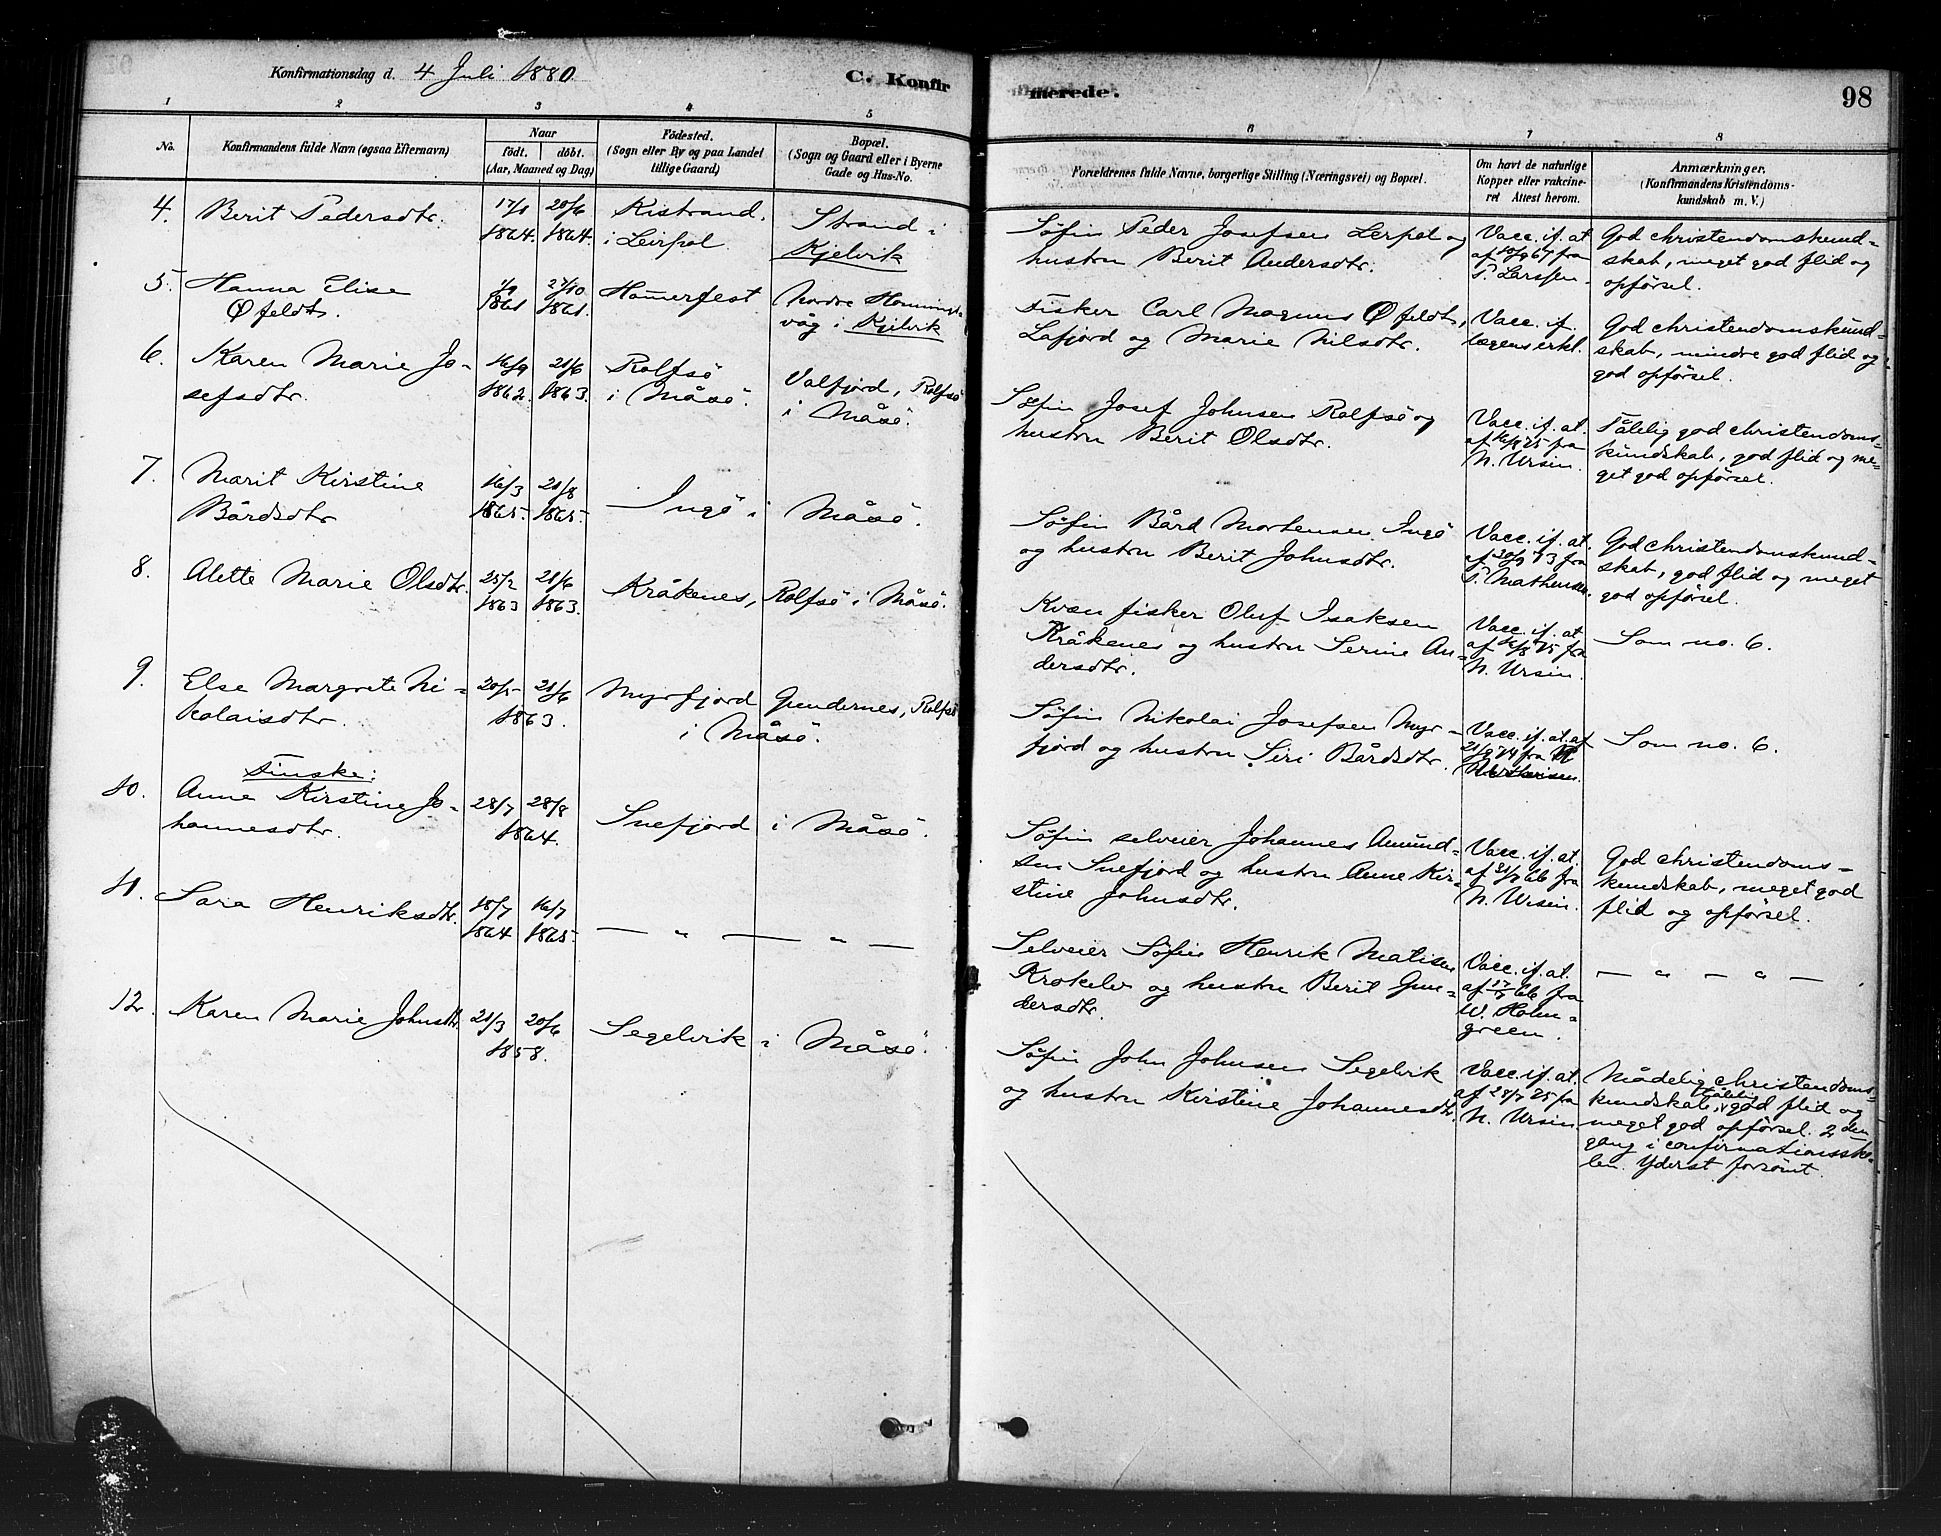 Konfirmationsdag d. 4 Juli 1880.
C. Konfirmerede.
98
1 2 3 4 5 6 7 8
No.
Konfirmandens fulde Navn (ogsaa Efternavn)
Naar
födt. döbt.
(Aar, Maaned og Dag)
Födested.
(Sogn eller By og paa Landet
tillige Gaard)
Bopæl.
(Sogn og Gaard eller i Byerne
Gade og Hus-No.
Forældrenes fulde Navne, borgerlige Stilling (Næringsvei) og Bopæl.
Om havt de naturlige
Kopper eller vakcine-
ret Attest herom.
Anmærkninger.
(Konfirmandens Kristendoms-
kundskab m. V.)
4. Berit Pedersdtr. 17/1 1864. 20/6 1864.
Kistrand.
i Leirpol
Strand i
Kjelvik
Søfin Peder Josefsen Lerpol og
hustru Berit Andersdtr.
Vacc. if. at.
af 10/9 67 fra
P. Larssen.
God christendomskund-
skab, meget god flid og
opførsel.
5. Hanna Elise
Øfeldt. 1/9 1861 27/10 1861.
Hamerfest
Nordre Honnings-
våg i Kjelvik
Fisker Carl Magnus Øfeldt,
Lafjord og Marie Nilsdtr.
Vacc. if.
lægens erkl.
God christendomskund-
skab, mindre god flid og
god opførsel.
6. Karen Marie Jo-
sefsdtr. 16/9 1862. 21/6 1863.
Rolfsö
i Måsö.
Valfjord, Rolfsö
i Måsö.
Søfin Josef Johnsen Rolfsö og
hustru Berit Olsdtr.
Vacc. if. at.
af 16/8 75 fra
N. Ursin.
Tålelig god christendoms-
kundskab, god flid og me-
get god opførsel.
7. Marit Kirstine
Bårdsdtr 16/3 1865. 21/8 1865.
Ingö i Måsö.
Søfin Bård Mortensen Ingö
og hustru Berit Johnsdtr.
Vacc. if. at.
af 30/9 73 fra
P. Mathensen.
God christendomskund-
skab, god flid og meget
god opførsel.
8. Alette Marie Olsdtr. 25/2 1863 21/6 1863.
Kråkenes, Rolfsö i Måsö.
Kvæn fisker Oluf Isaksen
Kråkenes og hustru Serine An-
dersdtr.
Vacc. if. at
af 16/8 75 fra
N. Ursin.
Som no. 6.
9. Else Margrete Ni-
kolaisdtr. 20/5 21/6
1863.
Myrfjord Gundernes, Rolfsö
i Måsö.
Søfin Nikolai Josefsen Myr-
fjord og hustru Siri Bårdsdtr.
Vacc. if. at. af
21/9 74 fra
Som no. 6.
Finske:
10. Anne Kirstine Jo-
hannesdtr. 28/7 28/8
1864.
Snefjord i Måsö.
Søfin selveier Johannes Amund-
sen Snefjord og hustru Anne Kir-
stine Johnsdtr.
Vacc. if. at.
af 21/7 66 fra
N. Ursin.
God christendoms-
kundskab, meget god
flid og opførsel.
11. Sara Henriksdtr. 18/7 1864 16/7 1865.
— „ — — „ —
Selveier Søfin Henrik Matisen
Krokelv og hustru Berit Gun-
dersdtr.
Vacc. if. at.
af 17/7 66 fra
W. Holm-
green.
— „ — „ —
12. Karen Marie Johnsdtr. 21/3 20/6
1858.
Segelvik i Måsö.
Søfin John Johnsen Segelvik
og hustru Kirstine Johannesdtr.
Vacc. if. at.
af 28/7 75 fra
N. Ursin.
Mådelig christendoms-
kundskab, tålelig god flid og
meget god opførsel. 2den
gang i confirmationssko-
len. Yderst forsömt.